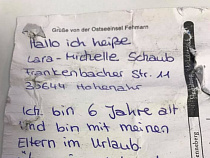 Grüße von der Ostseeinsel Fehmarn
Hallo ich heiße
Lara-Michelle Schaub
Frankenbacher Str. 11
35644 Hohenahr
Ich bin 6 Jahre alt
und bin mit meinen
Eltern im Urlaub.